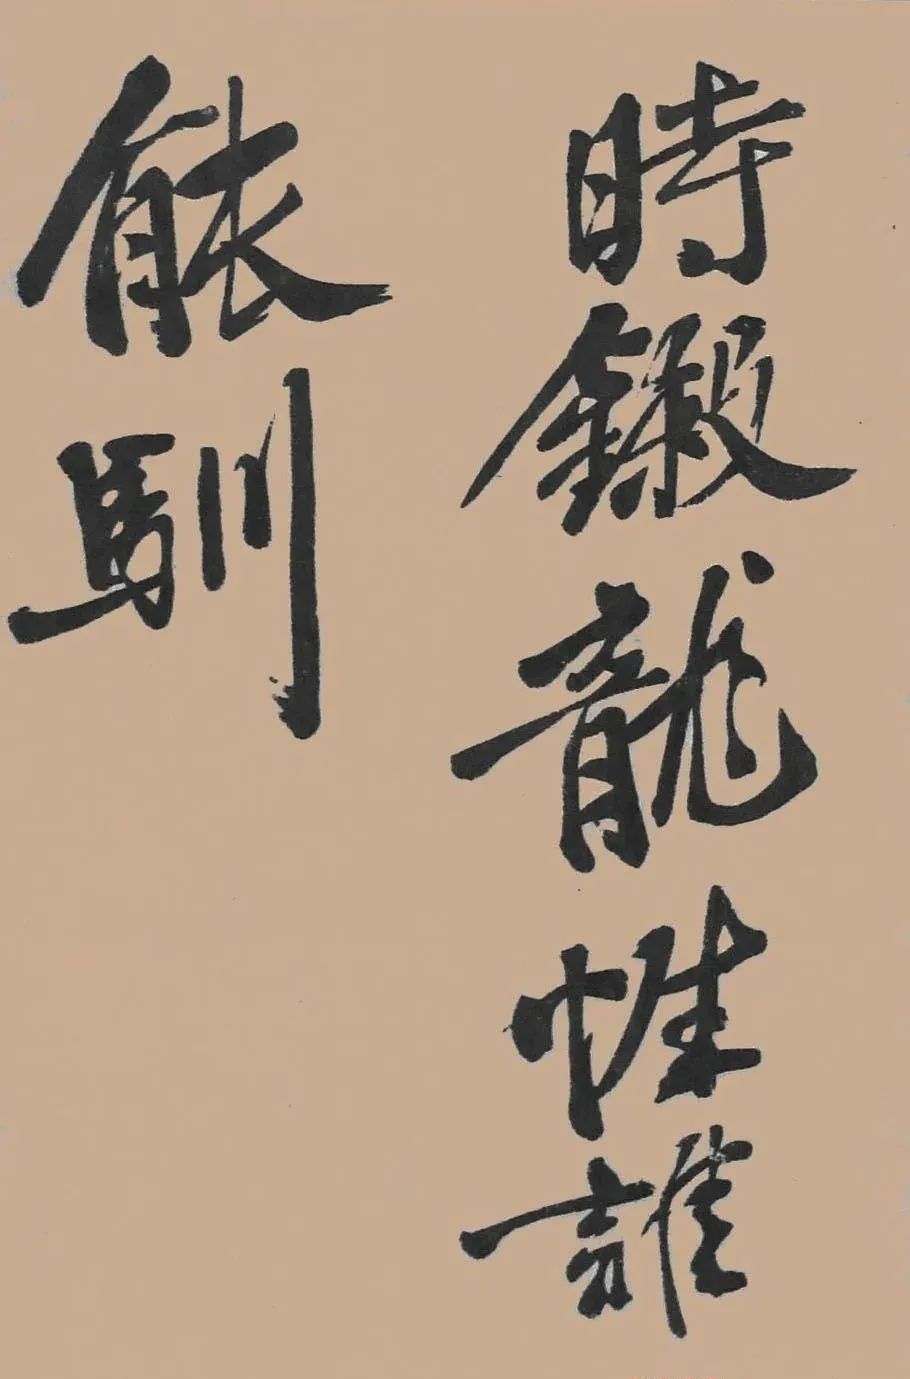 時鎩龍性誰
能馴